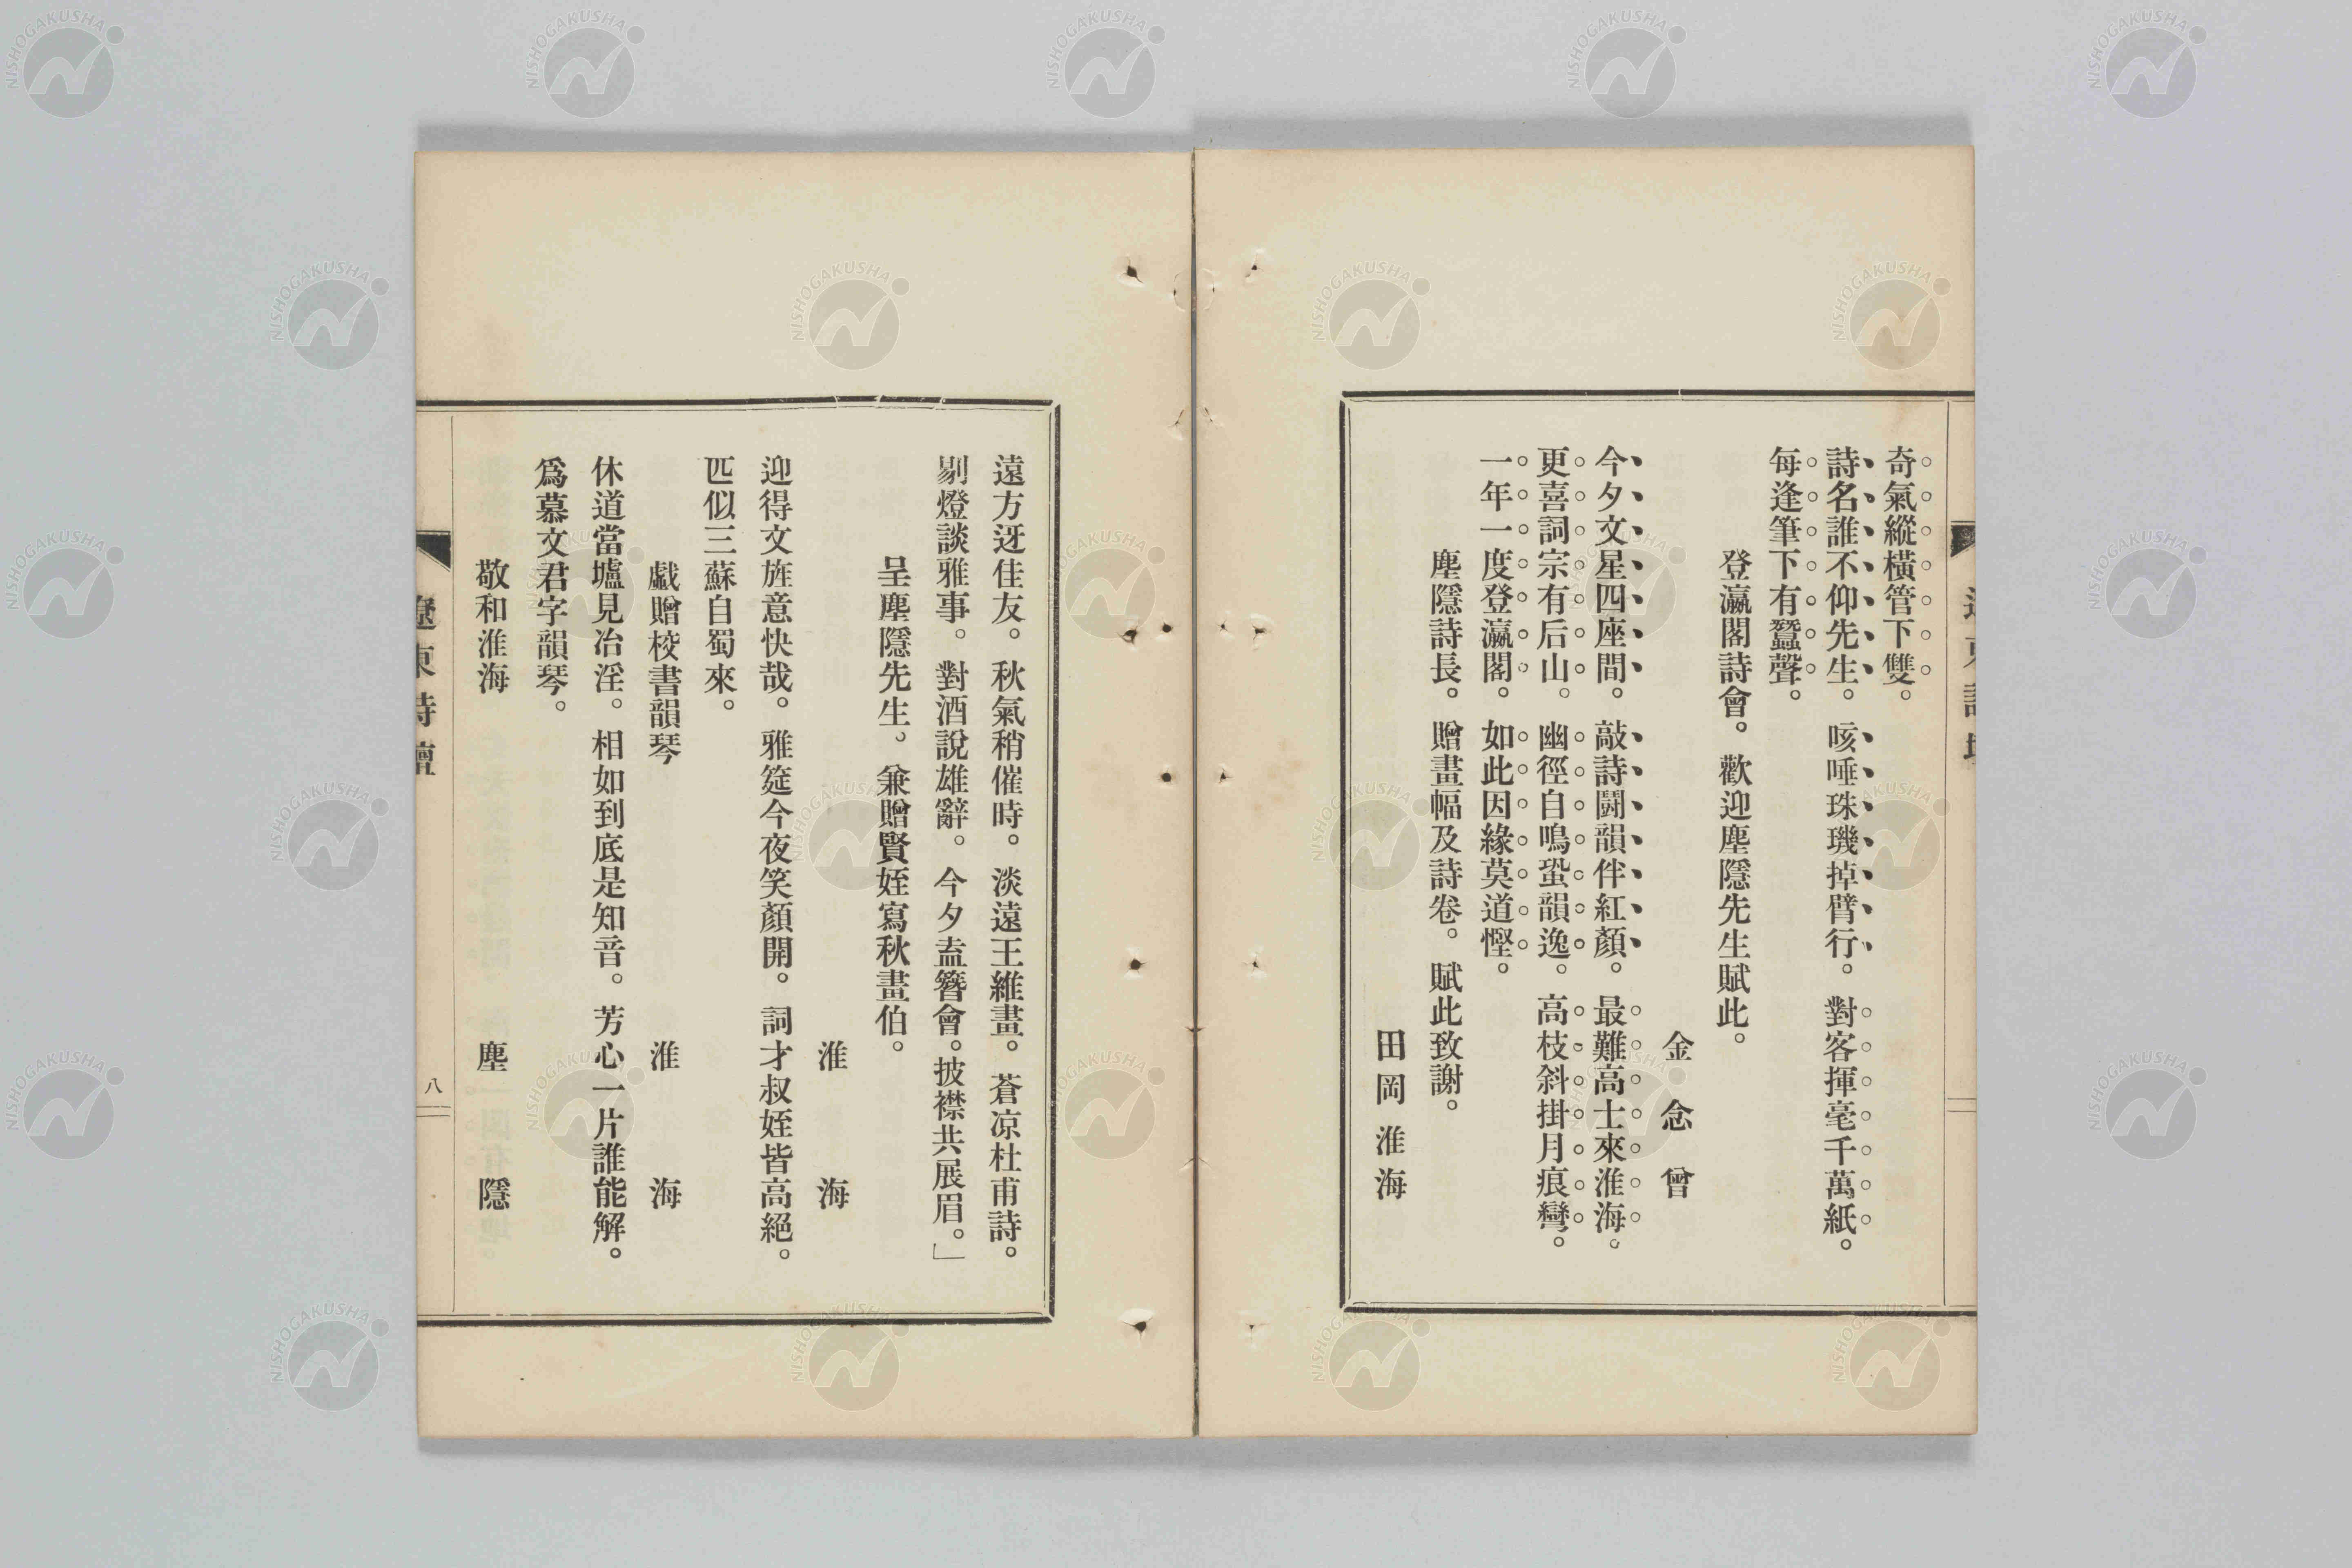 奇氣縱橫管下雙。
詩名誰不仰先生。咳唾珠璣掉臂行。對客揮毫千萬紙。
每逢筆下有蠶聲。
登瀛閣詩會。歡迎塵隱先生賦此。
金念曾
今夕文星四座間。敲詩鬪韻伴紅顏。最難高士來淮海。
更喜詞宗有后山。幽徑自鳴蛩韻逸。高枝斜掛月痕彎。
一年一度登瀛閣。如此因緣莫道慳。
塵隱詩長。贈畫幅及詩卷。賦此致謝。
田岡淮海
遠方迓佳友。秋氣稍催時。淡遠王維畫。蒼凉杜甫詩。
剔燈談雅事。對酒說雄辭。今夕盍簪會。披襟共展眉。」
呈塵隱先生、兼贈賢姪寫秋畫伯。
淮海
迎得文旌意快哉。雅筵今夜笑顏開。詞才叔姪皆高絕。
匹似三蘇自蜀來。
戱贈校書韻琴 淮海
休道當壚見冶淫。相如到底是知音。芳心一片誰能解。
爲慕文君字韻琴。
敬和淮海 塵隱
遼東詩壇
八
NISHOGAKUSHA